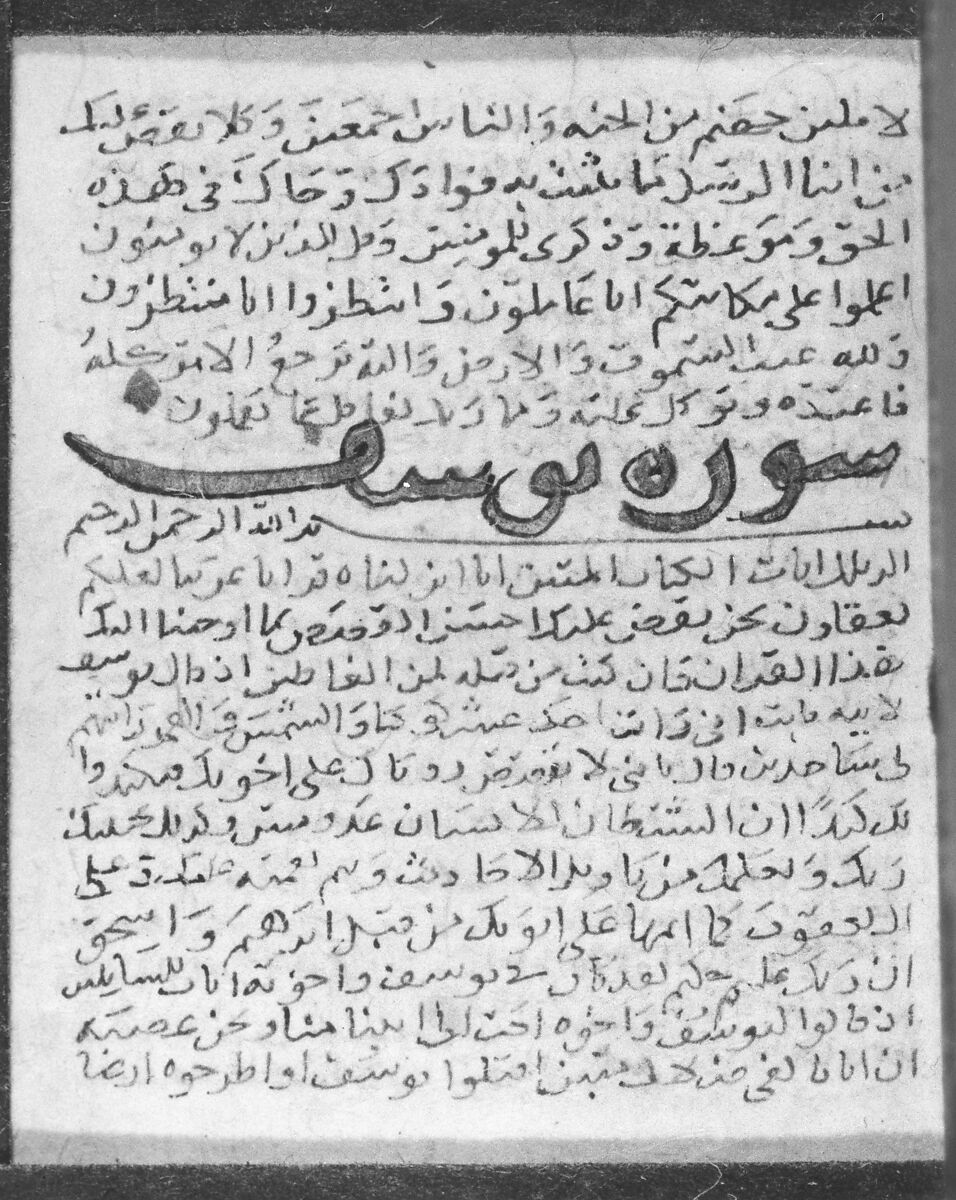 لاملين جهنم من الجنه والناس اجمعين وكلا نقص عليك
من انبا الرسل ما نثبت به فوادك وجاك في هذه
الحق وموعظة وذكرى للمومنين وقل للذين لا يومنون
اعملوا على مكانتكم انا عاملون وانتظروا انا منتظرون
ولله غيب السموت والارض واليه ترجع الامر كله
فاعبده وتوكل عليه وما ربك بغافل عما تعملون
سورة يوسف
بسم الله الرحمن الرحيم
الر تلك ايات الكتاب المبين انا انزلناه قرانا عربيا لعلكم
تعقلون نحن نقص عليك احسن القصص بما اوحينا اليك
هذا القران وان كنت من قبله لمن الغافلين اذ قال يوسف
لابيه يابت اني رايت احد عشر كوكبا والشمس والقمر رايتهم
لي ساجدين قال يابني لا تقصص روياك على اخوتك فيكيدوا
لك كيدا ان الشيطان للانسان عدو مبين وكذلك يجتبيك
ربك ويعلمك من تاويل الاحاديث ويتم نعمته عليك وعلى
ال يعقوب كما اتمها على ابويك من قبل ابرهيم واسحق
ان ربك عليم حكيم لقد كان في يوسف واخوته ايات للسايلين
اذ قالوا ليوسف واخوه احب الى ابينا منا ونحن عصبه
ان ابانا لفي ضلال مبين اقتلوا يوسف او اطرحوه ارضا